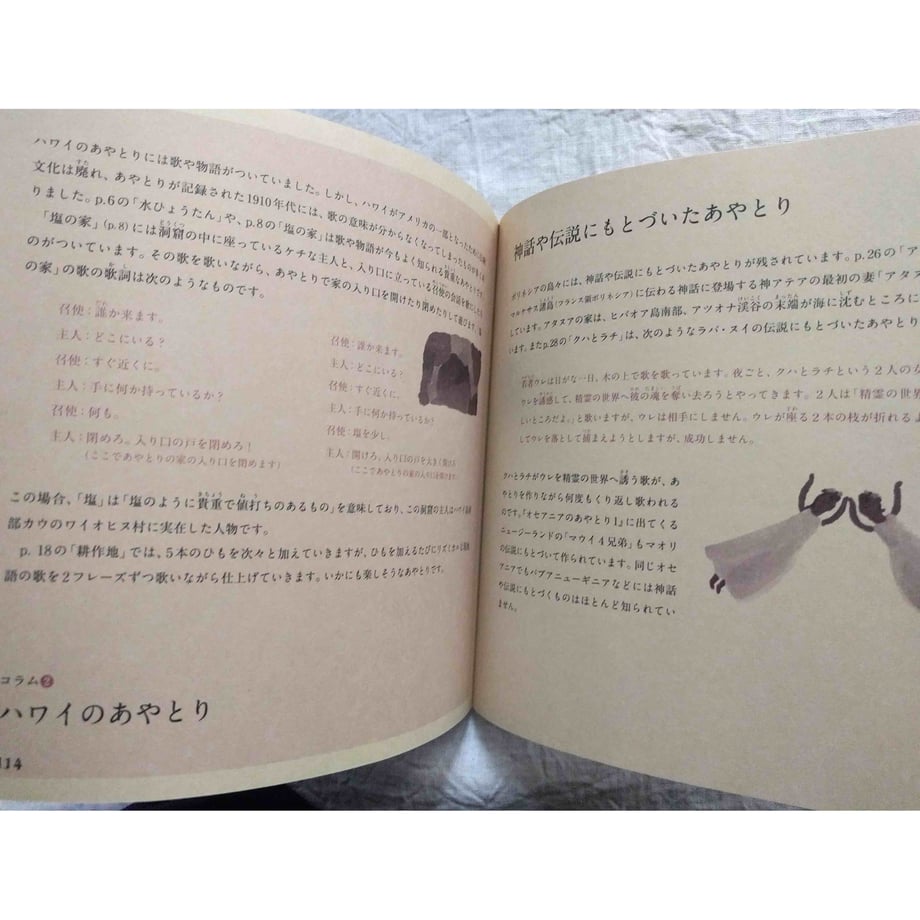 ハワイのあやとりには歌や物語がついていました。しかし、ハワイがアメリカの一部となったために
文化は廃れ、あやとりが記録された1910年代には、歌の意味が分からなくなってしまったものが多くあ
りました。p.6の「水ひょうたん」や、p.8の「塩の家」は歌や物語が今もよく知られる貴重なあやとりです。
「塩の家」(p.8)には洞窟の中に座っているケチな主人と、入り口に立っている召使の会話を歌にしたも
のがついています。その歌を歌いながら、あやとりで家の入り口を開けたり閉めたりして遊びます。
の家」の歌の歌詞は次のようなものです。
召使：誰か来ます。
主人：どこにいる？
召使：すぐ近くに。
主人：手に何か持っているか？
召使：何も。
主人：閉めろ。入り口の戸を閉めろ！
（ここであやとりの家の入り口を閉めます）
召使：誰か来ます。
主人：どこにいる？
召使：すぐ近くに。
主人：手に何か持っているか？
召使：塩を少し。
主人：開けろ。入り口の戸を大きく開けろ
（ここであやとりの家の入り口を開けます）
この場合、「塩」は「塩のように貴重で値打ちのあるもの」を意味しており、この洞窟の主人はハワイ島南
部カウのワイオヒヌ村に実在した人物です。
p. 18の「耕作地」では、5本のひもを次々と加えていきますが、ひもを加えるたびにリズミカルな
語の歌を2フレーズずつ歌いながら仕上げていきます。いかにも楽しそうなあやとりです。
コラム❷
ハワイのあやとり
114
神話や伝説にもとづいたあやとり
ポリネシアの島々には、神話や伝説にもとづいたあやとりが残されています。p.26の「ア
マルケサス諸島(フランス領ポリネシア)に伝わる神話に登場する神アテアの最初の妻「アタヌ
しています。アタヌアの家は、ヒバオア島南部、アツオナ渓谷の末端が海に沈むところに
います。またp.28の「クハとラチ」は、次のようなラパ・ヌイの伝説にもとづいたあやとり
若者ウレは日がな一日、木の上で歌を歌っています。夜ごと、クハとラチという2人の女
ウレを誘惑して、精霊の世界へ彼の魂を奪い去ろうとやってきます。2人は「精霊の世界
しいところだよ。」と歌いますが、ウレは相手にしません。ウレが座る2本の枝が折れるよ
してウレを落として捕まえようとしますが、成功しません。
クハとラチがウレを精霊の世界へ誘う歌が、あ
やとりを作りながら何度もくり返し歌われる
のです。「オセアニアのあやとり1」に出てくる
ニュージーランドの「マウイ4兄弟」もマオリ
の伝説にもとづいて作られています。同じオセ
アニアでもパプアニューギニアなどには神話
や伝説にもとづくものはほとんど知られてい
ません。